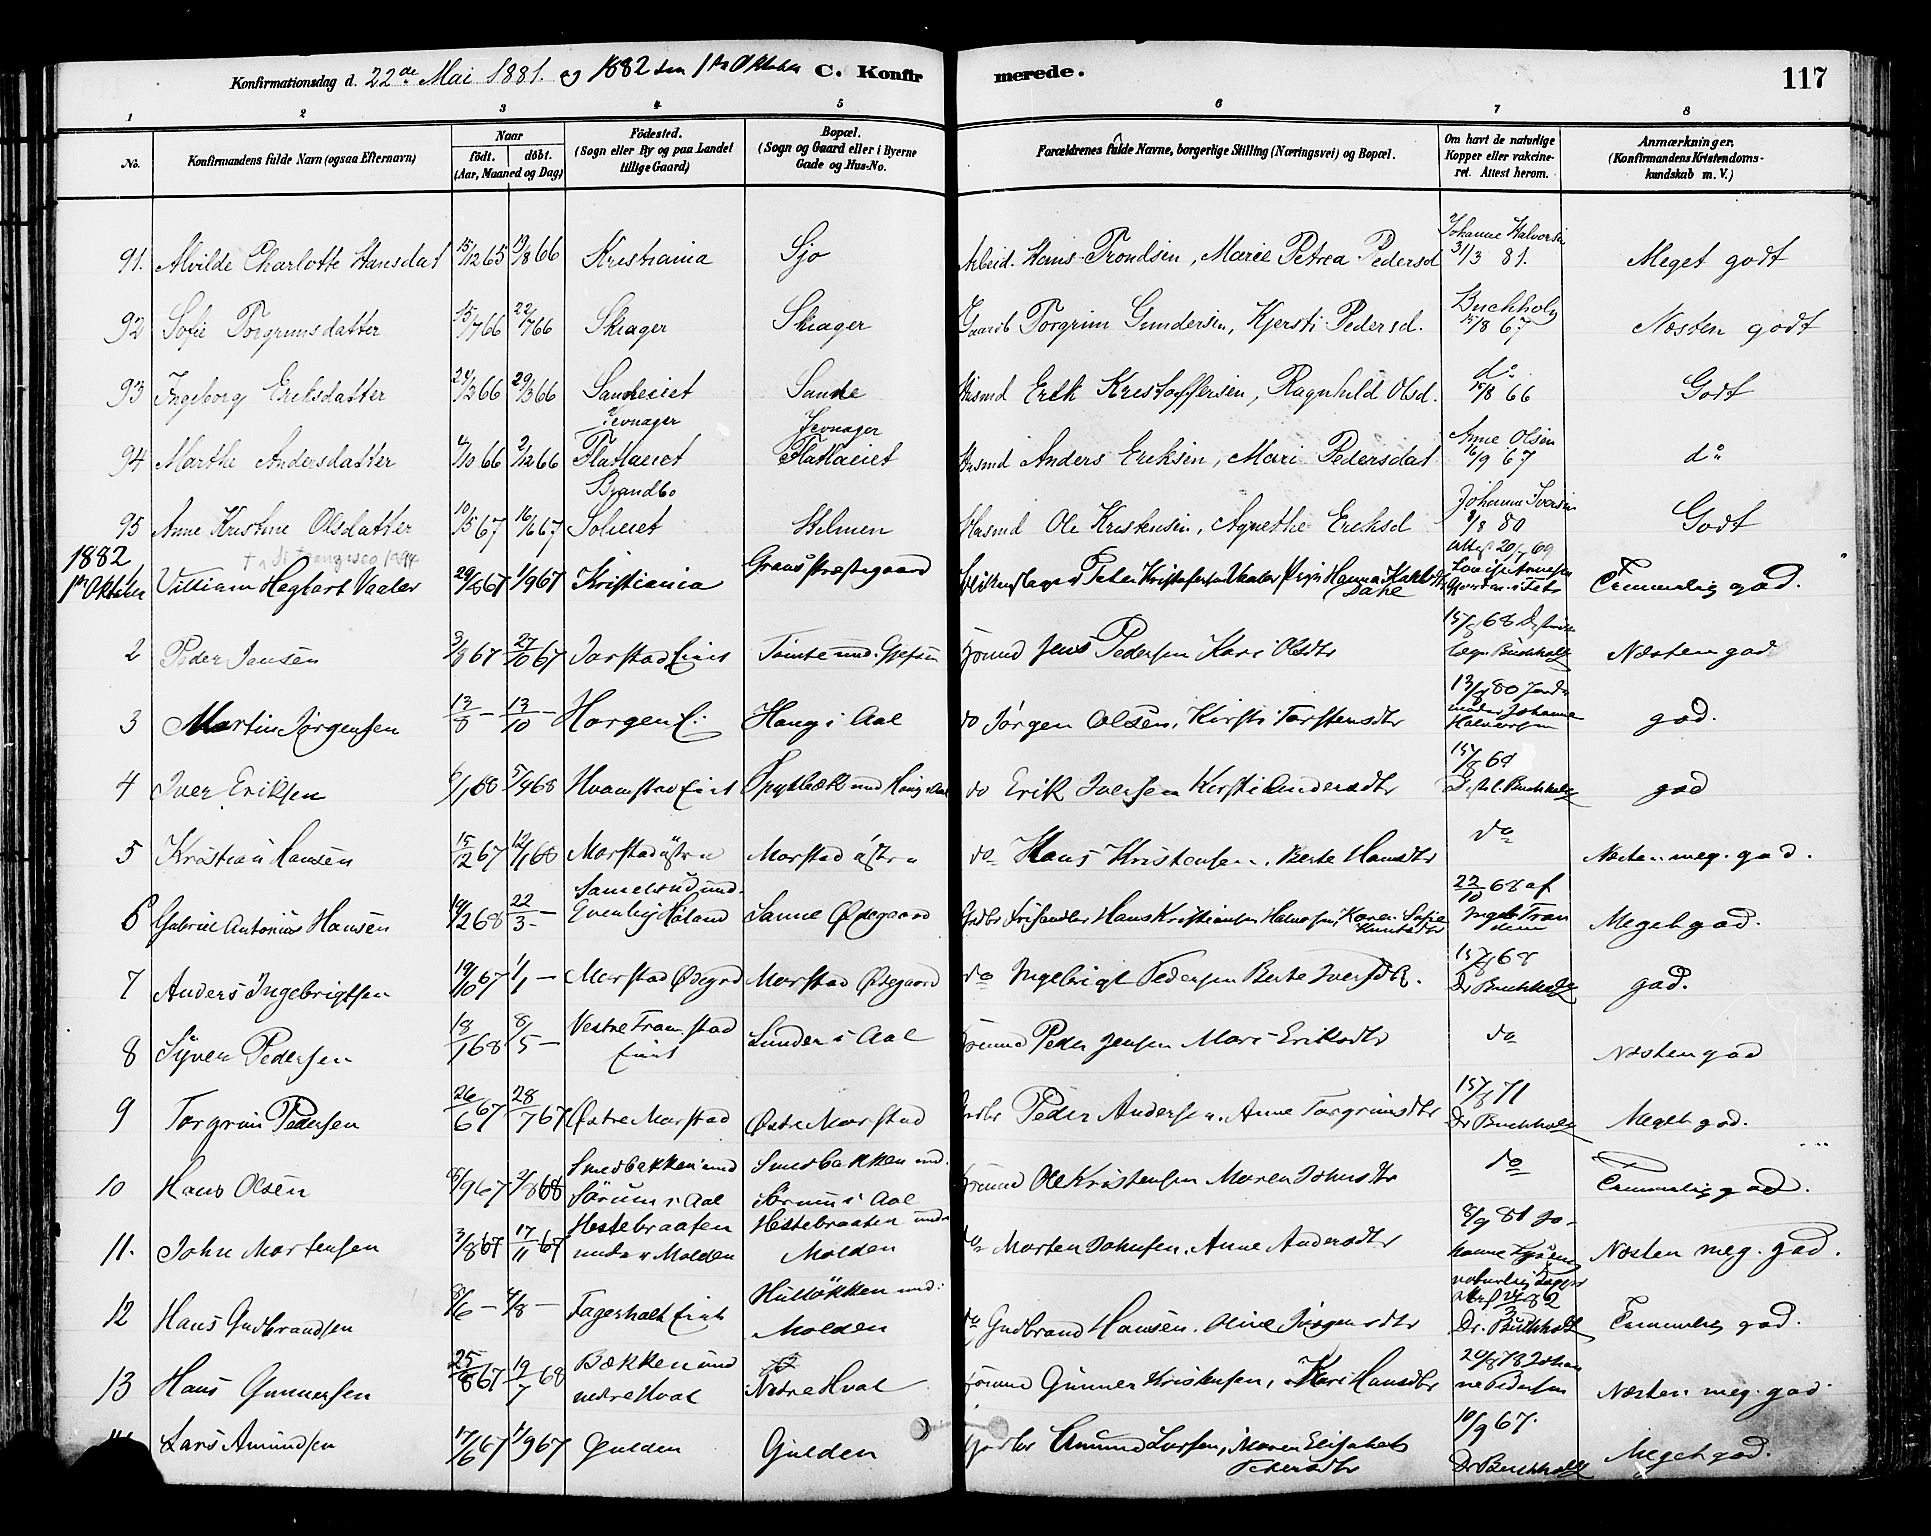 Konfirmationsdag d. 22de Mai 1881. og 1882 den 1ste Oktober C. Konfirmerede. 117
1 2 3 4 5 6 7 8
No. Konfirmandens fulde Navn (ogsaa Efternavn) Naar født. døbt. (Aar, Maaned og Dag) Födested. (Sogn eller By og paa Landet tillige Gaard) Bopæl. (Sogn og Gaard eller i Byerne Gade og Hus-No. Forældrenes fulde Navne, borgerlige Stilling (Næringsvei) og Bopæl. Om havt de naturlige Kopper eller vakcineret. Attest herom. Anmærkninger. (Konfirmandens Kristendomskundskab m. V.)
91. Alvilde Charlotte Hansdat 15/12 65 19/8 66 Kristiania Sjo Arbeid. Hans Trondsen, Marie Petrea Pedersd Johanne Halvorsen 31/3 81. Meget godt
92 Sofie Torgrimsdatter 15/7 66 22/7 66 Skiager Skiager Gaardb Torgrim Gundersen, Kjersti Pedersd. Buchholz 15/8 67 Næsten godt
93 Ingeborg Eriksdatter 24/2 66 29/3 66 Sandeeiet Sande Husmd Erik Kristoffersen, Ragnhild Olsd. do 15/8 66 Godt
94 Marthe Andersdatter 4/10 66 2/12 66 Jevnager Flatlaeiet Jevnager Flatlaeiet Husmd Anders Eriksen, Mari Pedersdat Anne Olsen 16/9 67 do
95 Anne Kristine Olsdatter 10/5 67 16/6 67 Brandbo Solieiet Helmen Husmd Ole Kristensen, Agnethe Eriksd Johanne Iversen 8/8 80 Godt
1882
1ste Oktober Villiam Hegbart Vaaler 29/6 67 1/9 67 Kristiania Grans Præstegaard Peter Kristofersen Vaaler Hanna Dahl Temmelig god.
2 Peder Jensen 3/8 67 27/10 67 Jorstad Eiet Tomte und. Gjefsen Husmd Jens Pedersen Kari Olsdtr 15/8 68 Buchholz Næsten god
3 Martin Jørgensen 13/8 - 13/10 - Horgen E. Haug i Aal do Jørgen Olsen, Kirsti Torstensdtr 13/8 80 Johanne Halvorsen god.
4 Iver Eriksen 6/1 68 5/4 68 Hvamstad Eiet und Haug i Aal do Erik Iversen Kirsti Andersdtr 15/8 69 Buchholz god
5 Kristian Hansen 15/12 67 12/1 68 Morstad østre Morstad østre do Hans Kristensen, Berte Hansdtr do Næsten meg. god.
6 Gabriel Antonius Hansen 14/2 68 22/3 - Høland Sanne Ødegaard Hans Kristiansen Karen Sofie Knutsdtr 22/10 68 af Meget god.
7 Anders Ingebrigtsen 19/10 67 1/1 - Morstad Ødegrd Morstad Ødegaard do Ingebrigt Pedersen Berte Iversdtr. 15/8 68 Dr Buchholz god.
8 Syver Pedersen 18/1 68 8/5 - Vestre Framstad Eiet Lunder i Aal Husmd Peder Jensen Mari Eriksdtr do Næsten god
9 Torgrim Pedersen 26/6 67 28/7 67 Østre Morstad Østre Morstad Gardbr Peder Andersen, Anne Torgrimsdtr 15/8 71 Dr Buchholz Meget god.
10 Hans Olsen /9 67 2/8 68 Smedbakken und Sørum i Aal Smedbakken und. Sørum i Aal Husmd Ole Kristensen Maren Johnsdtr do Temmelig god.
11. John Mortensen 3/8 67 17/11 67 Hestebraaten under Molden Hestebraaten under Molden do Morten Johnsen, Anne Andersdtr 8/9 81 Johanne Næsten meg. god.
12 Hans Gudbrandsen /6 - /8 - Fagerholt Eiet Hulløkken und: Molden do Gudbrand Hansen. Oline Jørgensdtr Dr. Buchholz Temmelig god.
13 Hans Gunnersen 25/8 67 19/7 68 Bækken und nedre Hval Nedre Hval Husmd Gunner Kristensen, Kari Hansdtr 20/8 78 Johanne Pedersen Næsten meg. god
14 Lars Amundsen 17/6 67 1/9 67 Gulden Gulden Gardbr Amund Larsen, Maren Elisabet Pedersdtr 10/9 67. Dr Buchholz Meget god.